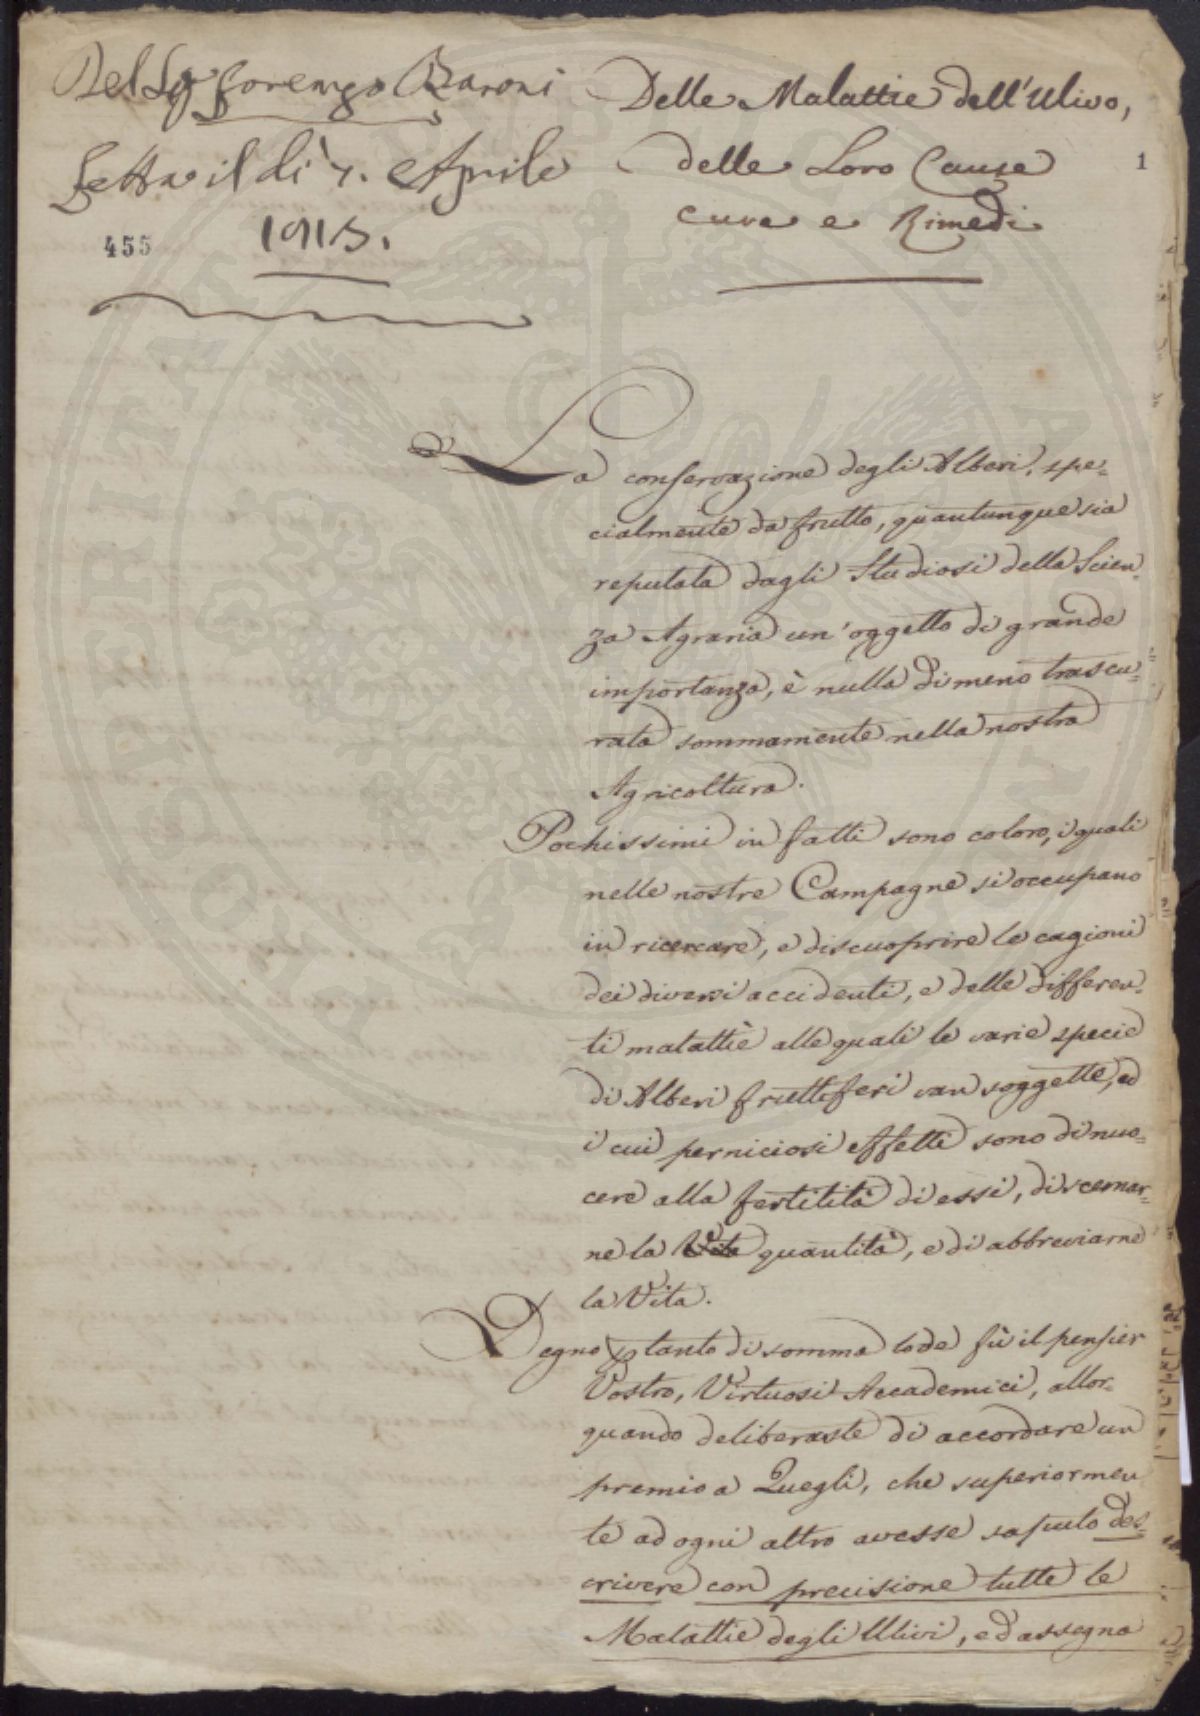 Del Sg.r Lorenzo Baroni
Letta il dì 7. Aprile
1813.
455
Delle Malattie dell'Ulivo,
delle Loro Cause
Cure e Rimedi
1
La conservazione degli Alberi, spe=
cialmente da frutto, quantunque sia
reputata dagli Studiosi della Scien=
za Agraria un'oggetto di grande
importanza, è nulla di meno trascu=
rata sommamente nella nostra
Agricoltura.
Pochissimi in fatti sono coloro, i quali
nelle nostre Campagne si occupano
in ricercare, e discuoprire le cagioni
dei diversi accidenti, e delle differen=
ti malattie alle quali le varie specie
di Alberi fruttiferi van soggette, ed
i cui perniciosi effetti sono di nuo=
cere alla fertilità di essi, di scemar=
ne la quantità, e di abbreviarne
la Vita.
Degno ptanto di somma lode fù il pensier
Vostro, Virtuosi Accademici, allor=
quando deliberaste di accordare un
premio a Quegli, che superiormen
te ad ogni altro avesse saputo des=
crivere con precisione tutte le
Malattie degli Ulivi, ed assegna